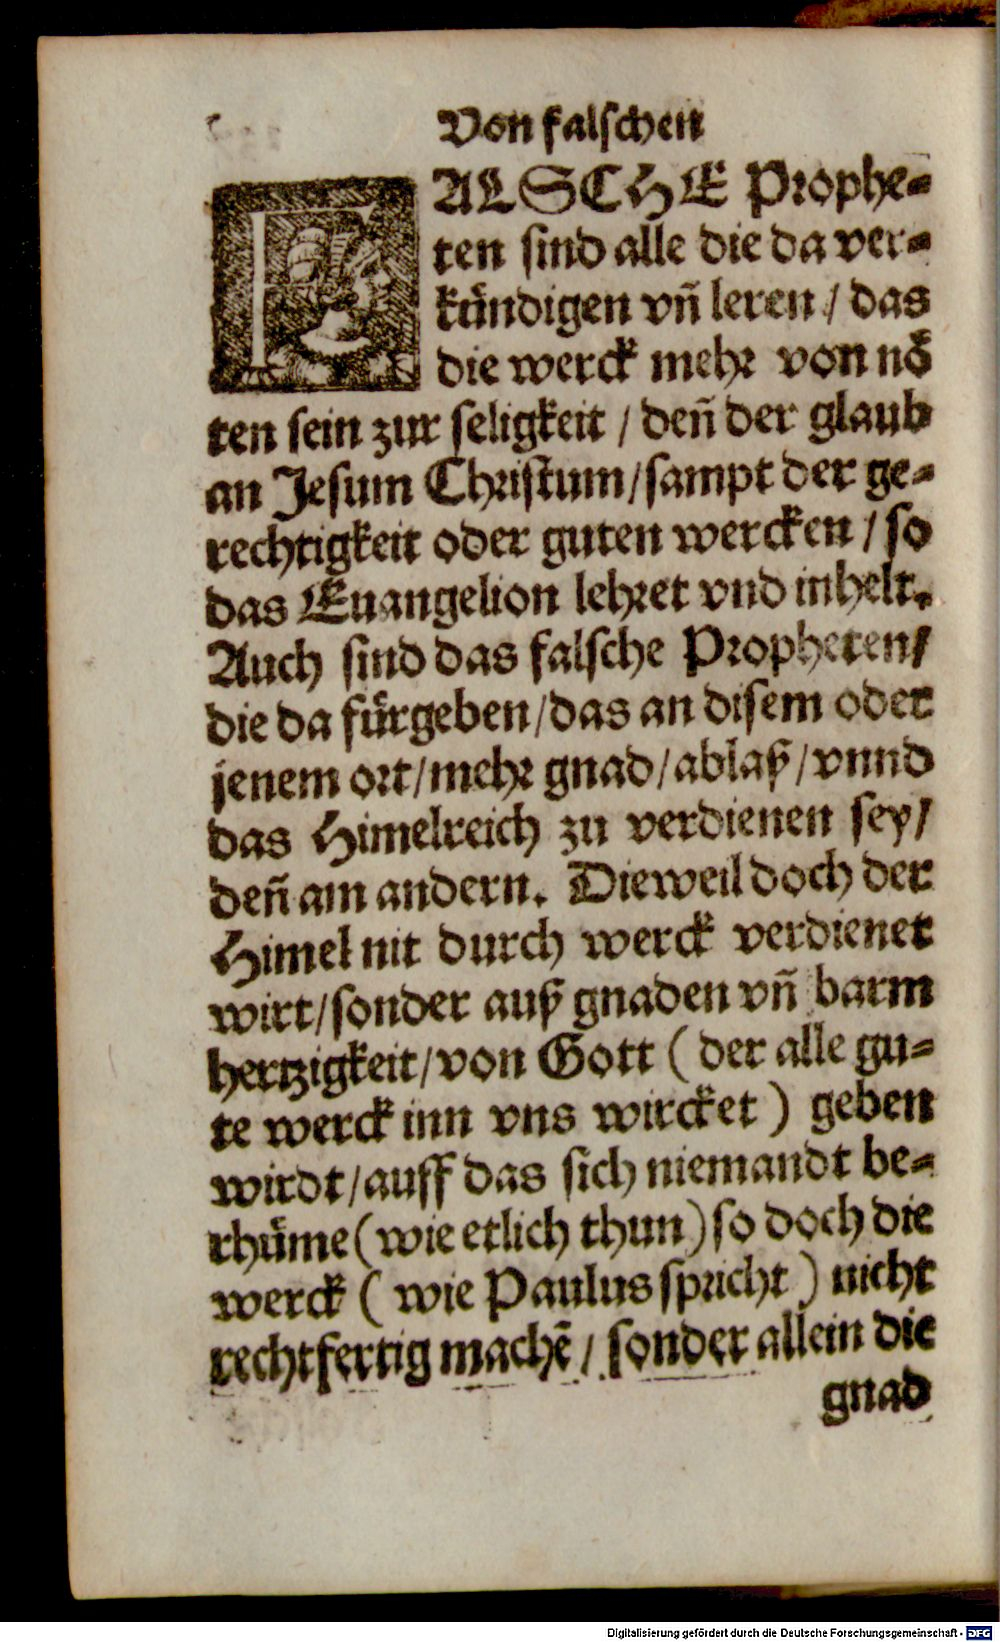 Von falschen
FALSCHE Prophe-
ten sind alle die da ver-
kündigen vñ leren / das
die werck mehr von nö
ten sein zur seligkeit / deñ der glaub
an Jesum Christum / sampt der ge-
rechtigkeit oder guten wercken / so
das Euangelion lehret vnd inhelt.
Auch sind das falsche Propheten /
die da fürgeben / das an disem oder
jenem ort / mehr gnad / ablaß / vnnd
das Himelreich zu verdienen sey /
deñ am andern. Dieweil doch der
Himel nit durch werck verdienet
wirt / sonder auß gnaden vñ barm
hertzigkeit / von Gott ( der alle gu-
te werck inn vns wircket ) geben
wirdt / auff das sich niemandt be-
rhüme ( wie etlich thun ) so doch die
werck ( wie Paulus spricht ) nicht
rechtfertig machē / sonder allein die
gnad
Digitalisierung gefördert durch die Deutsche Forschungsgemeinschaft - DFG